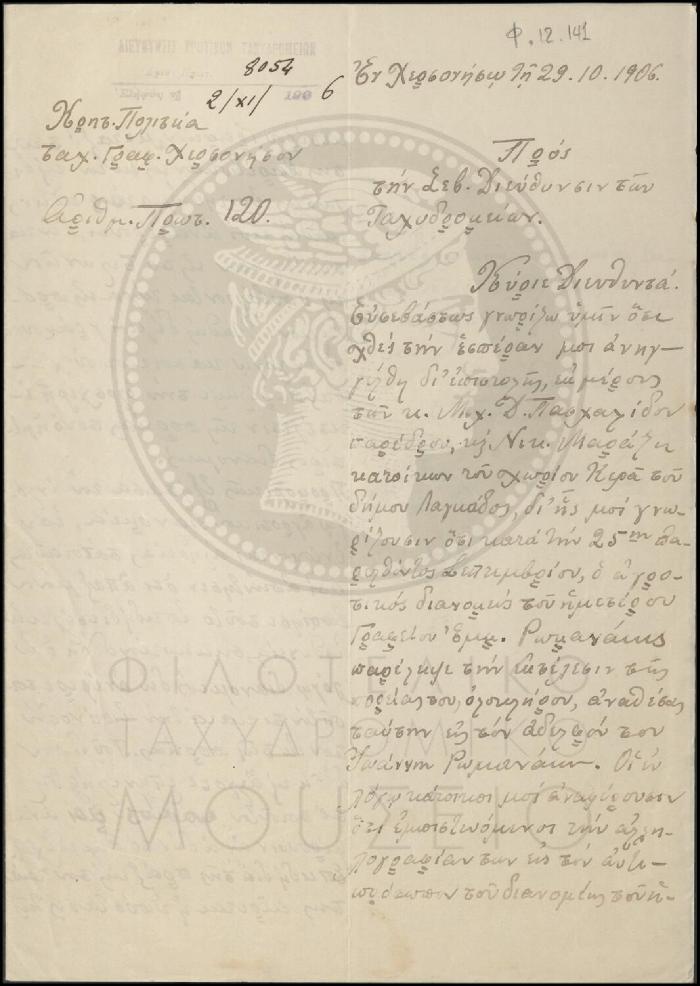 Φ.12.141
ΔΙΕΥΘΥΝΣΙΣ ΚΡΗΤΙΚΩΝ ΤΑΧΥΔΡΟΜΕΙΩΝ
8054
2/XI/ 190 6
Ἐν Χερσονήσῳ τῇ 29.10.1906.
Κρητ. Πολιτεία
ταχ. Γραφ. Χερσονήσου
Ἀριθμ. Πρωτ. 120.
Πρός
τήν Σεβ. Διεύθυνσιν τῶν
Ταχυδρομείων.
Κύριε Διευθυντά.
Εὐσεβάστως γνωρίζω ὑμῖν ὅτι
χθές τήν ἑσπέραν μοι ἀνηγ-
γέλθη δι' ἐπιστολῆς, ἐκ μέρους
τῶν κ. Μιχ. Δ. Πασχαλίδου
παρέδρου, κ Νικ. Μαράζη
κατοίκων τοῦ χωρίου Κερᾶ τοῦ
δήμου Λαγκάδος, δι' ἧς μοί γνω-
ρίζουσιν ὅτι κατά τήν 25ην πα-
ρελθόντος Σεπτεμβρίου, ὁ ἀγρο-
τικός διανομεύς τοῦ ἡμετέρου
Γραφείου Ἐμμ. Ρωμανάκης
παρέλειψε τήν ἐκτέλεσιν τῆς
πορείας του, ὁλοκλήρου, ἀναθέσας
ταύτην εἰς τόν ἀδελφόν του
Ἰωάννην Ρωμανάκην. Οἱ ἐν
λόγῳ κάτοικοι μοί ἀναφέρουσιν
ὅτι ἐμπιστευόμενοι τήν ἀλλη-
λογραφίαν των εἰς τόν ἀντι-
πρόσωπον τοῦ διανομέως τοῦ ἡ-
ΦΙΛΟΤΕΛΙΚΟ
ΤΑΧΥΔΡΟΜΙΚΟ
ΜΟΥΣΕΙΟ